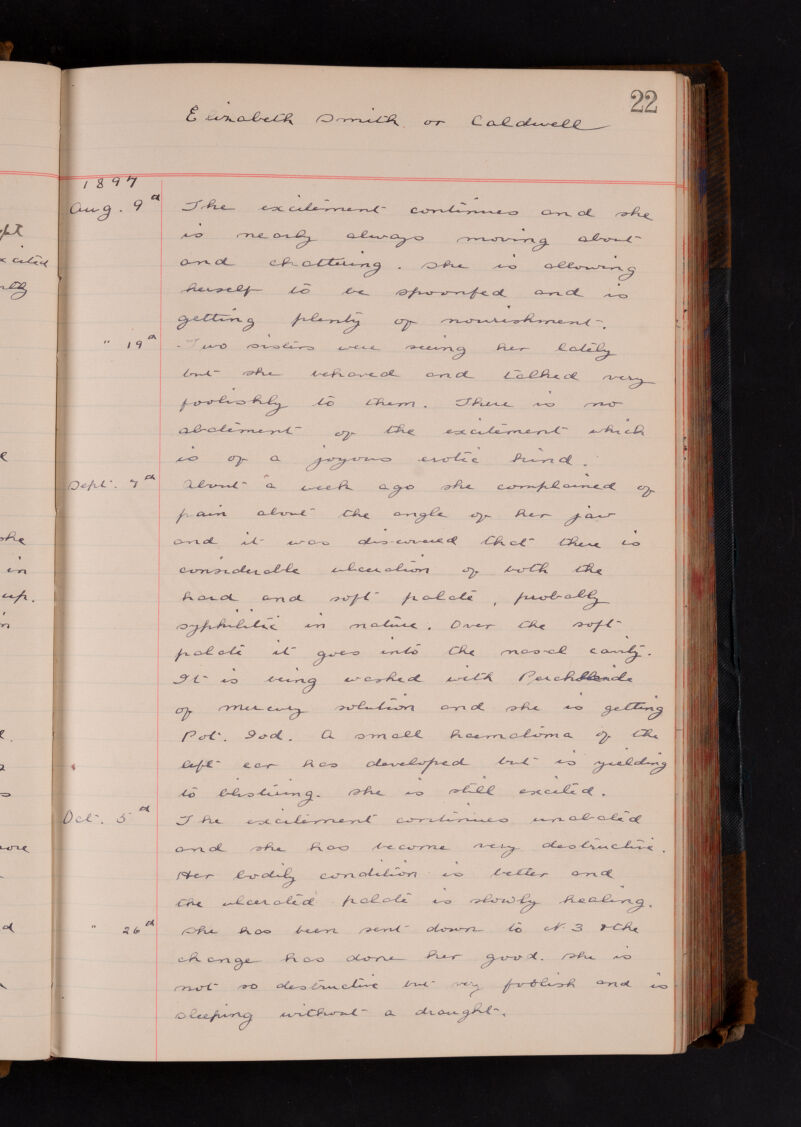 22
Elizabeth Smith or Caldwell
1897
Aug. 9th The excitement continues and she
is nearly always moving about
and chattering. She is allowing
herself to be spoonfed and is
getting plenty of nourishment.
" 19th Two sisters were seeing her lately
but she behaved and talked very
foolishly to them. There is no
abatement of the excitement which
is of a joyous erotic kind.
Sept. 7th About a week ago she complained of
pain about the angle of her jaw
and it was discovered that there is
considerable ulceration of both the
hard and soft palate, probably
syphilitic in nature. Over the soft
palate it goes into the nasal cavity.
It is being washed with Perchloride
of mercury solution and she is getting
Pot. Iod. A small haematoma of the
left ear has developed but is yielding
to blistering. She is still excited.
Oct. 5th The excitement continues unabated
and she has become very destructive.
Her bodily condition is better and
the ulcerated palate is slowly healing.
" 26th She has been sent down to N. 3 & the
change has done her good. She is
not so destructive but very foolish and is
sleeping without a draught.